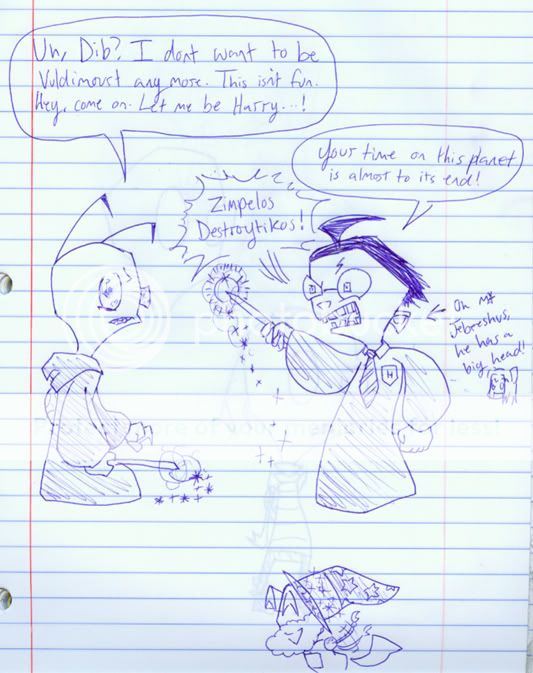 Uh, Dib? I dont want to be
Vuldimourt any more. This isn't fun.
Hey, come on. Let me be Harry...!
Your time on this planet
is almost to its end!
Zimpelos
Destroytikos!
Oh my
Jebeeshus,
he has a
big head!
H